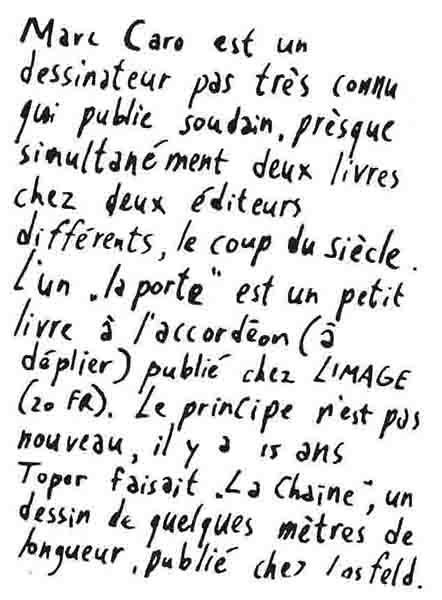 Marc Caro est un
dessinateur pas très connu
qui publie soudain, prèsque
simultanément deux livres
chez deux éditeurs
différents, le coup du siècle.
L'un „la porte" est un petit
livre à l'accordéon (à
déplier) publié chez L'IMAGE
(20 FR). Le principe n'est pas
nouveau, il y a 15 ans
Topor faisait „La Chaîne", un
dessin de quelques mètres de
longueur, publié chez Losfeld.